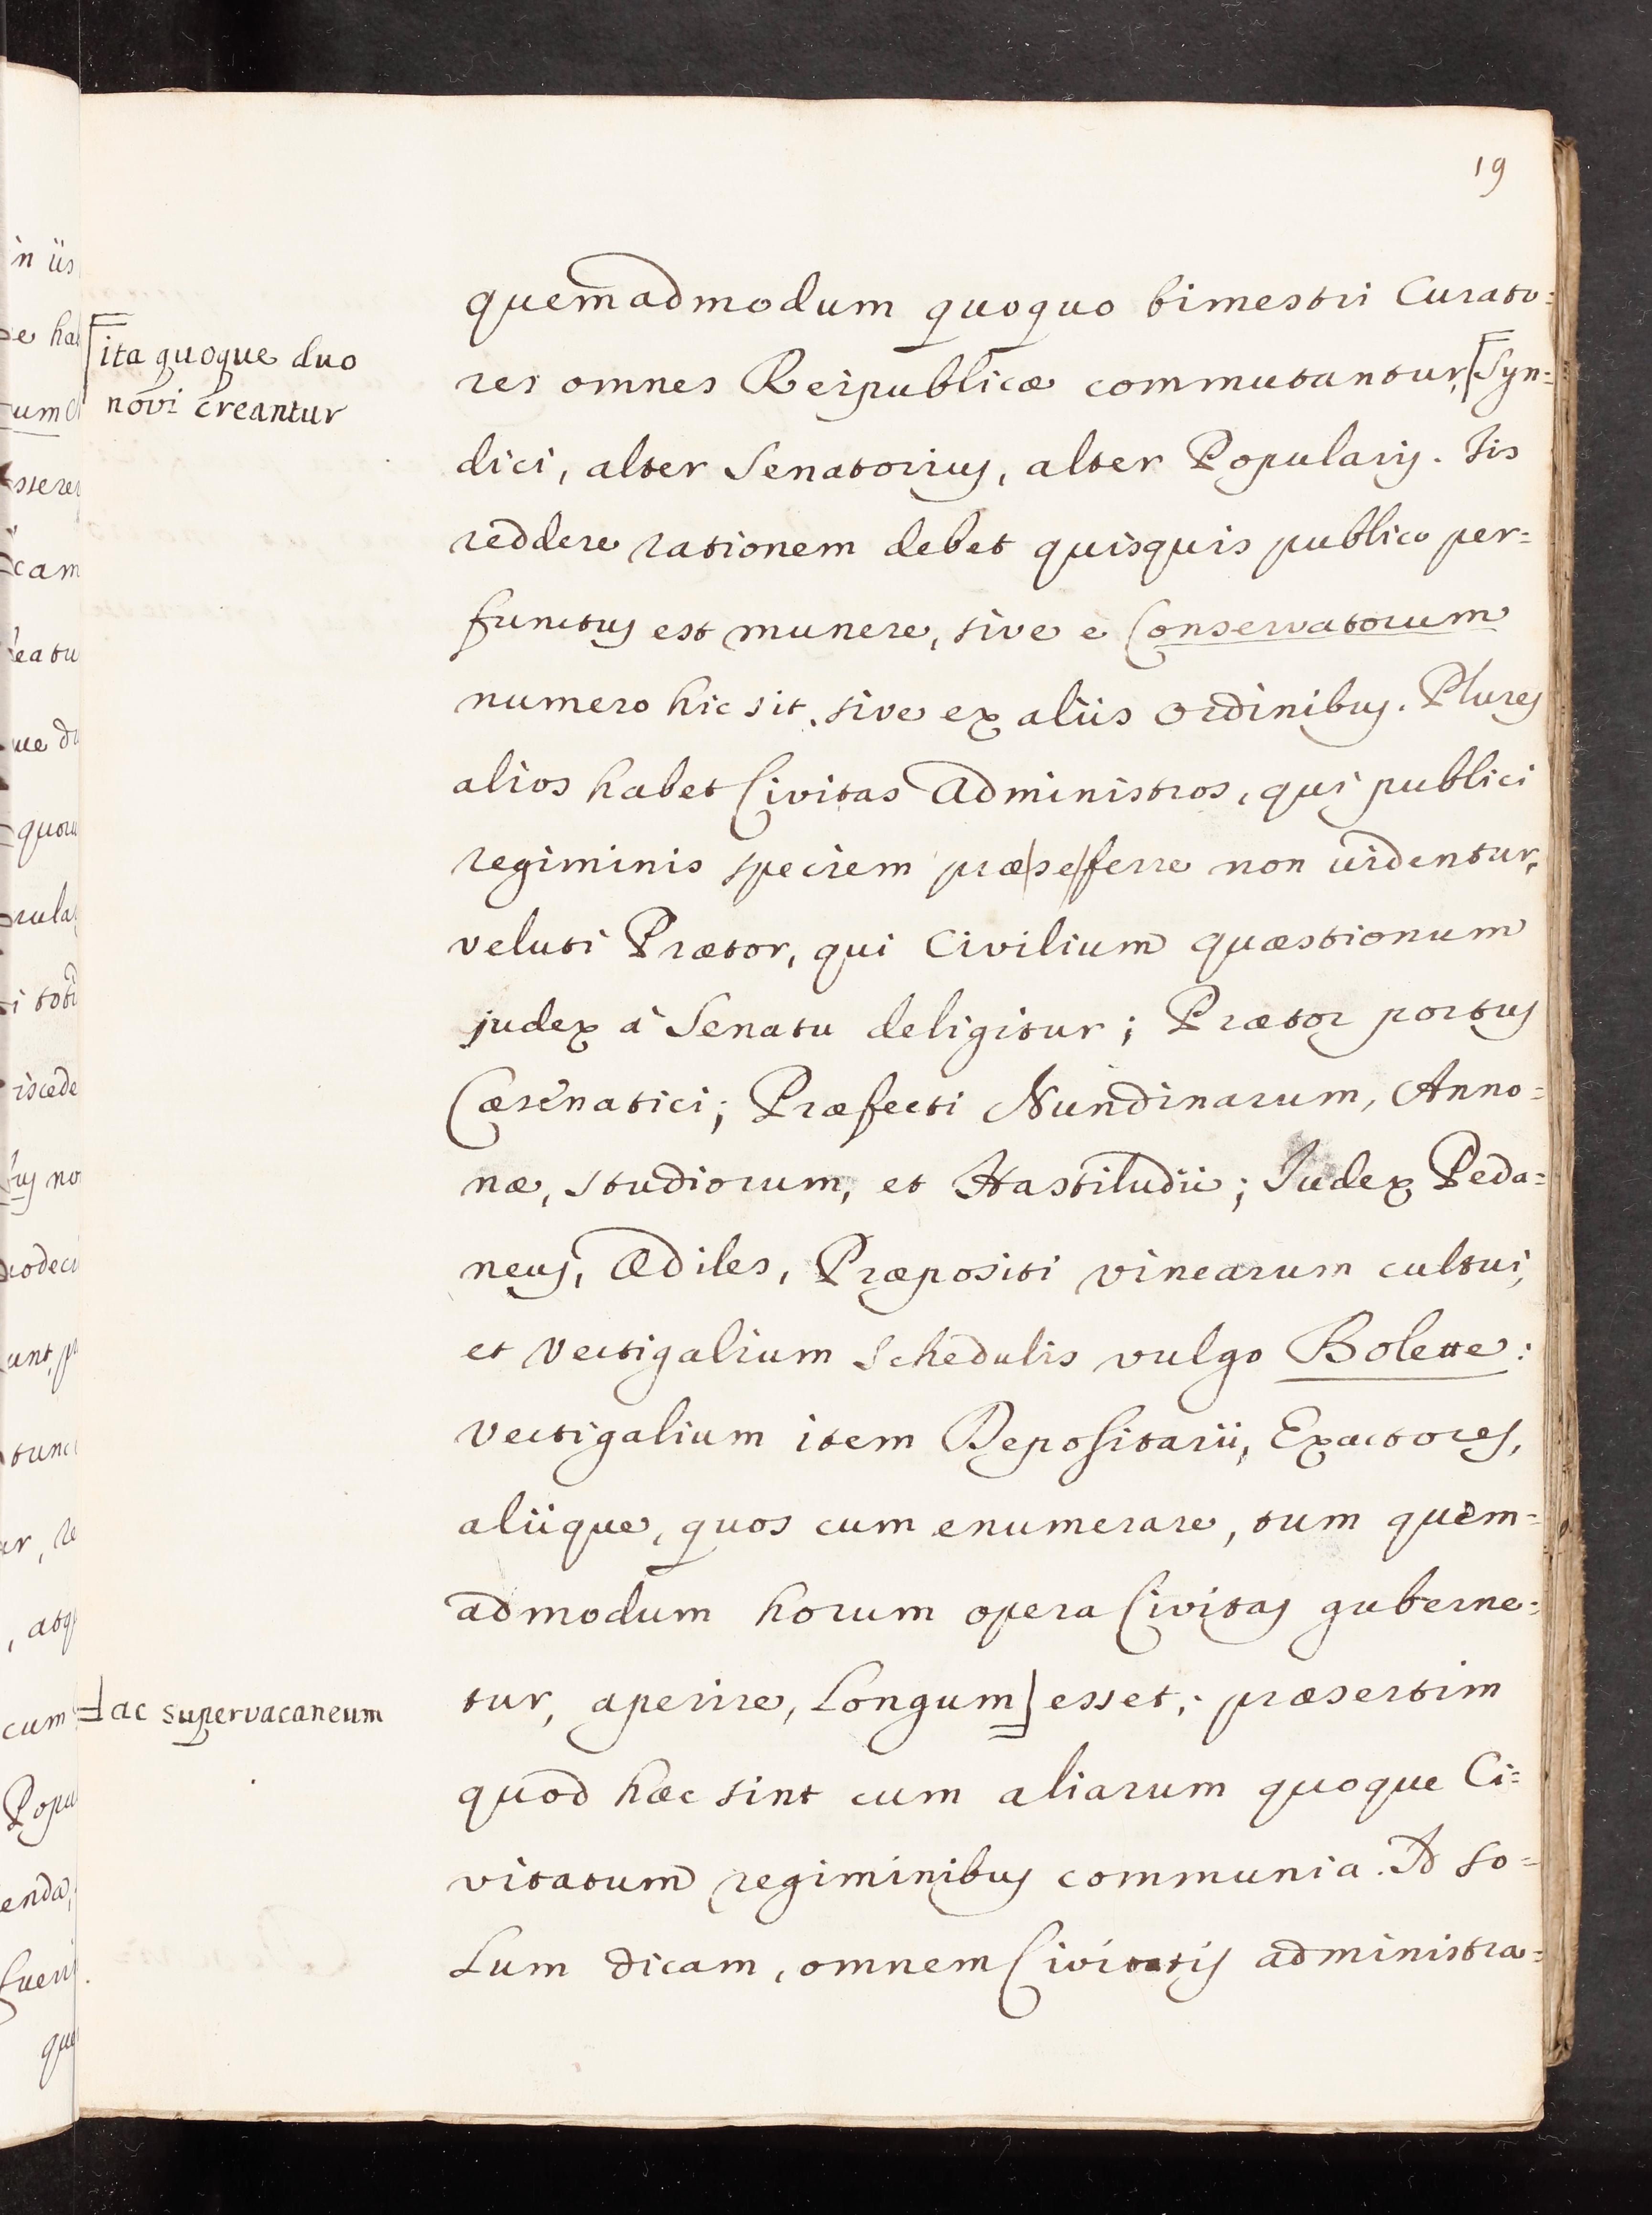 19
quemadmodum quoquo bimestri Curato=
res omnes Reipublicæ commutantur, Syn=
dici, alter Senatorius, alter Popularis. Iis
reddere rationem debet quisquis publico per=
functus est munere, sive è Conservatorum
numero hic sit, sive ex aliis ordinibus. Plures
alios habet Civitas Administros, qui publici
regiminis speciem præ|se|ferre non videntur,
veluti Prætor, qui Civilium quæstionum
judex à Senatu deligitur; Prætor portus
Cæsenatici; Præfecti Nundinarum, Anno=
næ, studiorum, et Hastiludii; Iudex Peda=
neus, Ædiles, Præpositi vinearum cultui,
et Vectigalium Schedulis vulgo Bolette:
Vectigalium item Depositarii, Exactores,
aliique, quos cum enumerare, tum quem=
admodum horum opera Civitas guberne=
tur, aperire, Longum esset; præsertim
quod hæc sint cum aliarum quoque Ci=
vitatum regiminibus communia. Id so=
Lum dicam, omnem Civitatis administra=
ita quoque duo
novi creantur
ac supervacaneum